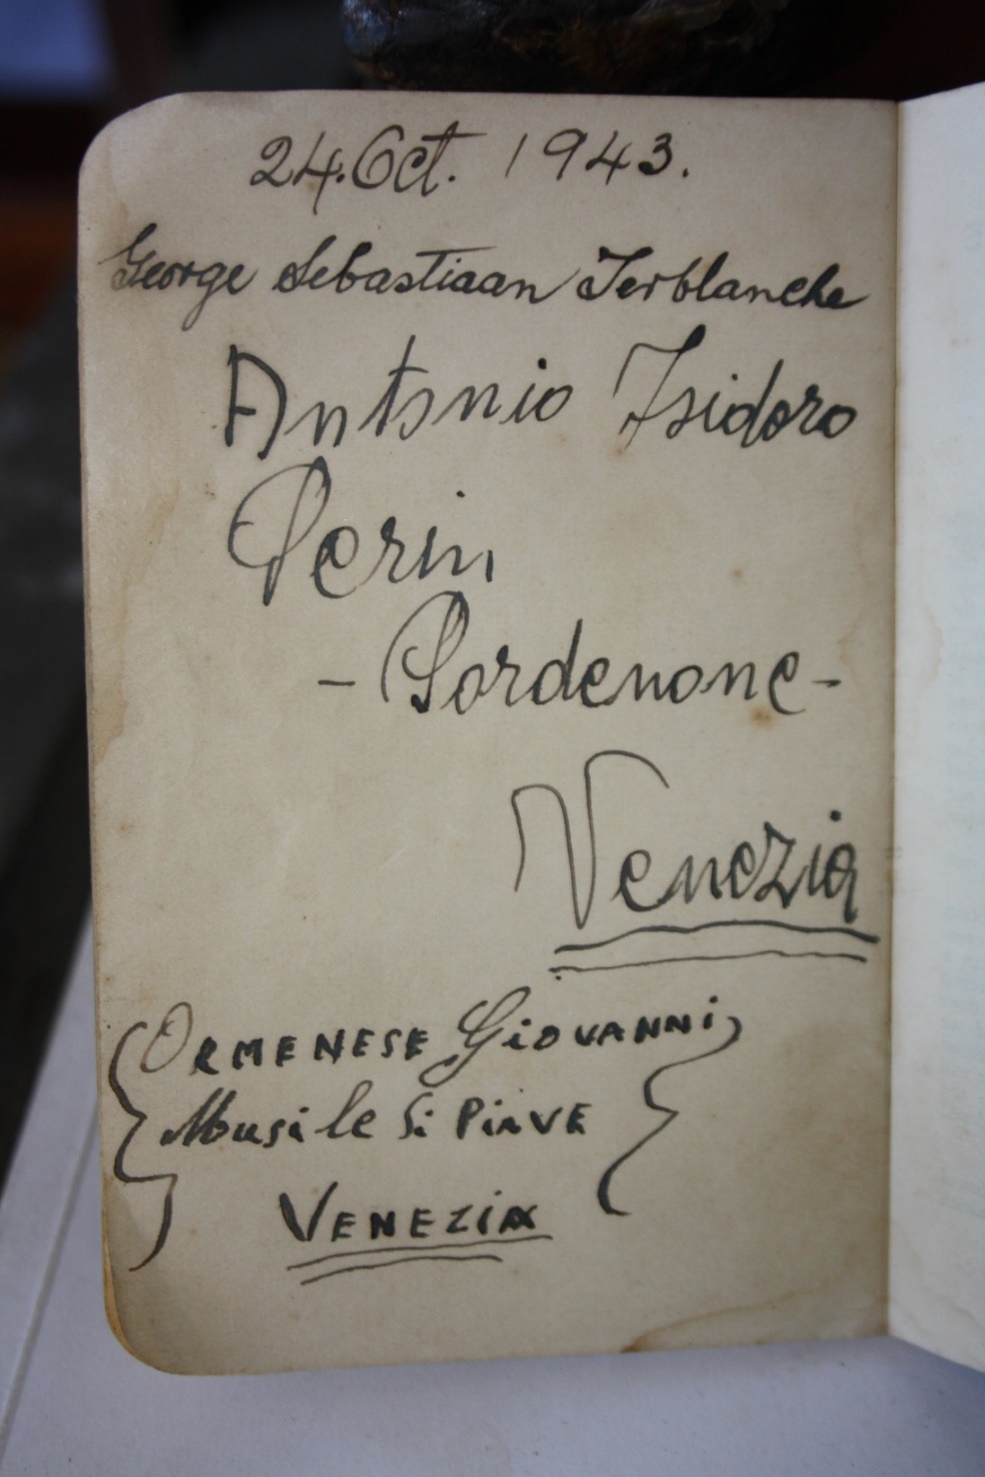 24. Oct. 1943.
George Sebastiaan Terblanche
Antonio Isidoro
Perin
- Pordenone -
Venezia
ORMENESE GiOVANNi
Musile Di PiAVE
VENEZiA